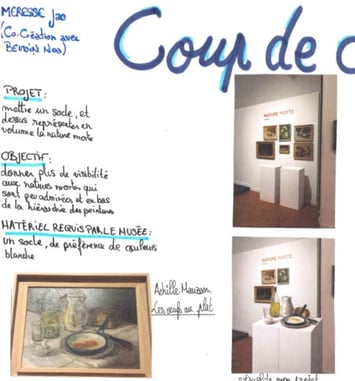 MERESSE Jao
(Co-Création avec
BEVOIN Noa)
Coup de c
PROJET:
mettre un socle, et
dessus représenter en
volume la nature morte
OBJECTIF:
donner plus de visibilité
aux natures mortes qui
sont peu admirées et en bas
de la hiérarchie des peintures
MATÉRIEL REQUIS PAR LE MUSÉE:
Un socle, de préférence de couleurs
blanche
NATURE MORTE
NATURE MORTE
Achille Mauzan,
Les œufs au plat